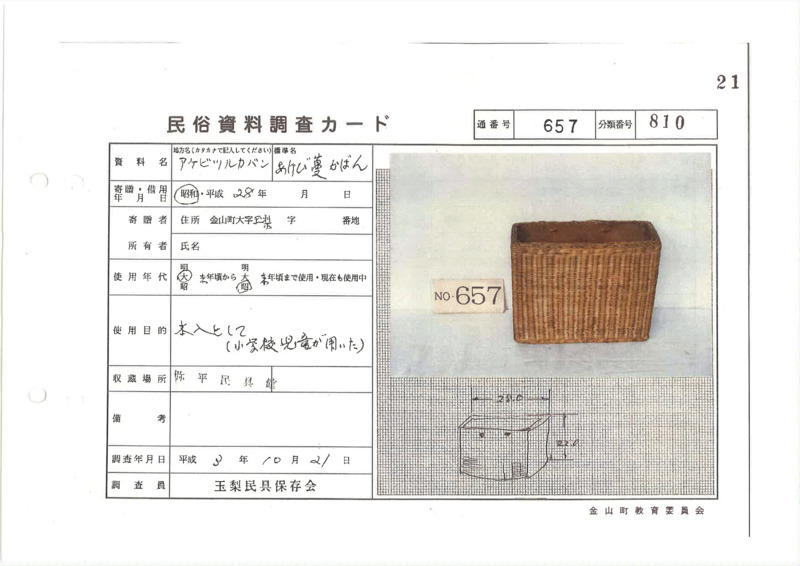 21
民俗資料調査カード
通番号 657 分類番号 810
資料名 地方名(カタカナで記入してください) アケビツルカバン 標準名 あけび蔓かばん
寄贈・借用年月日 昭和・平成 28年 月 日
寄贈者 住所 金山町大字玉梨 字 番地
所有者 氏名
使用年代 明大昭 末年頃から 明大昭 末年頃まで使用・現在も使用中
使用目的 本入として
(小学校児童が用いた)
収蔵場所 弥平民具館
備考
調査年月日 平成 3 年 10 月 21 日
調査員 玉梨民具保存会
NO-657
28.0
22.0
金山町教育委員会